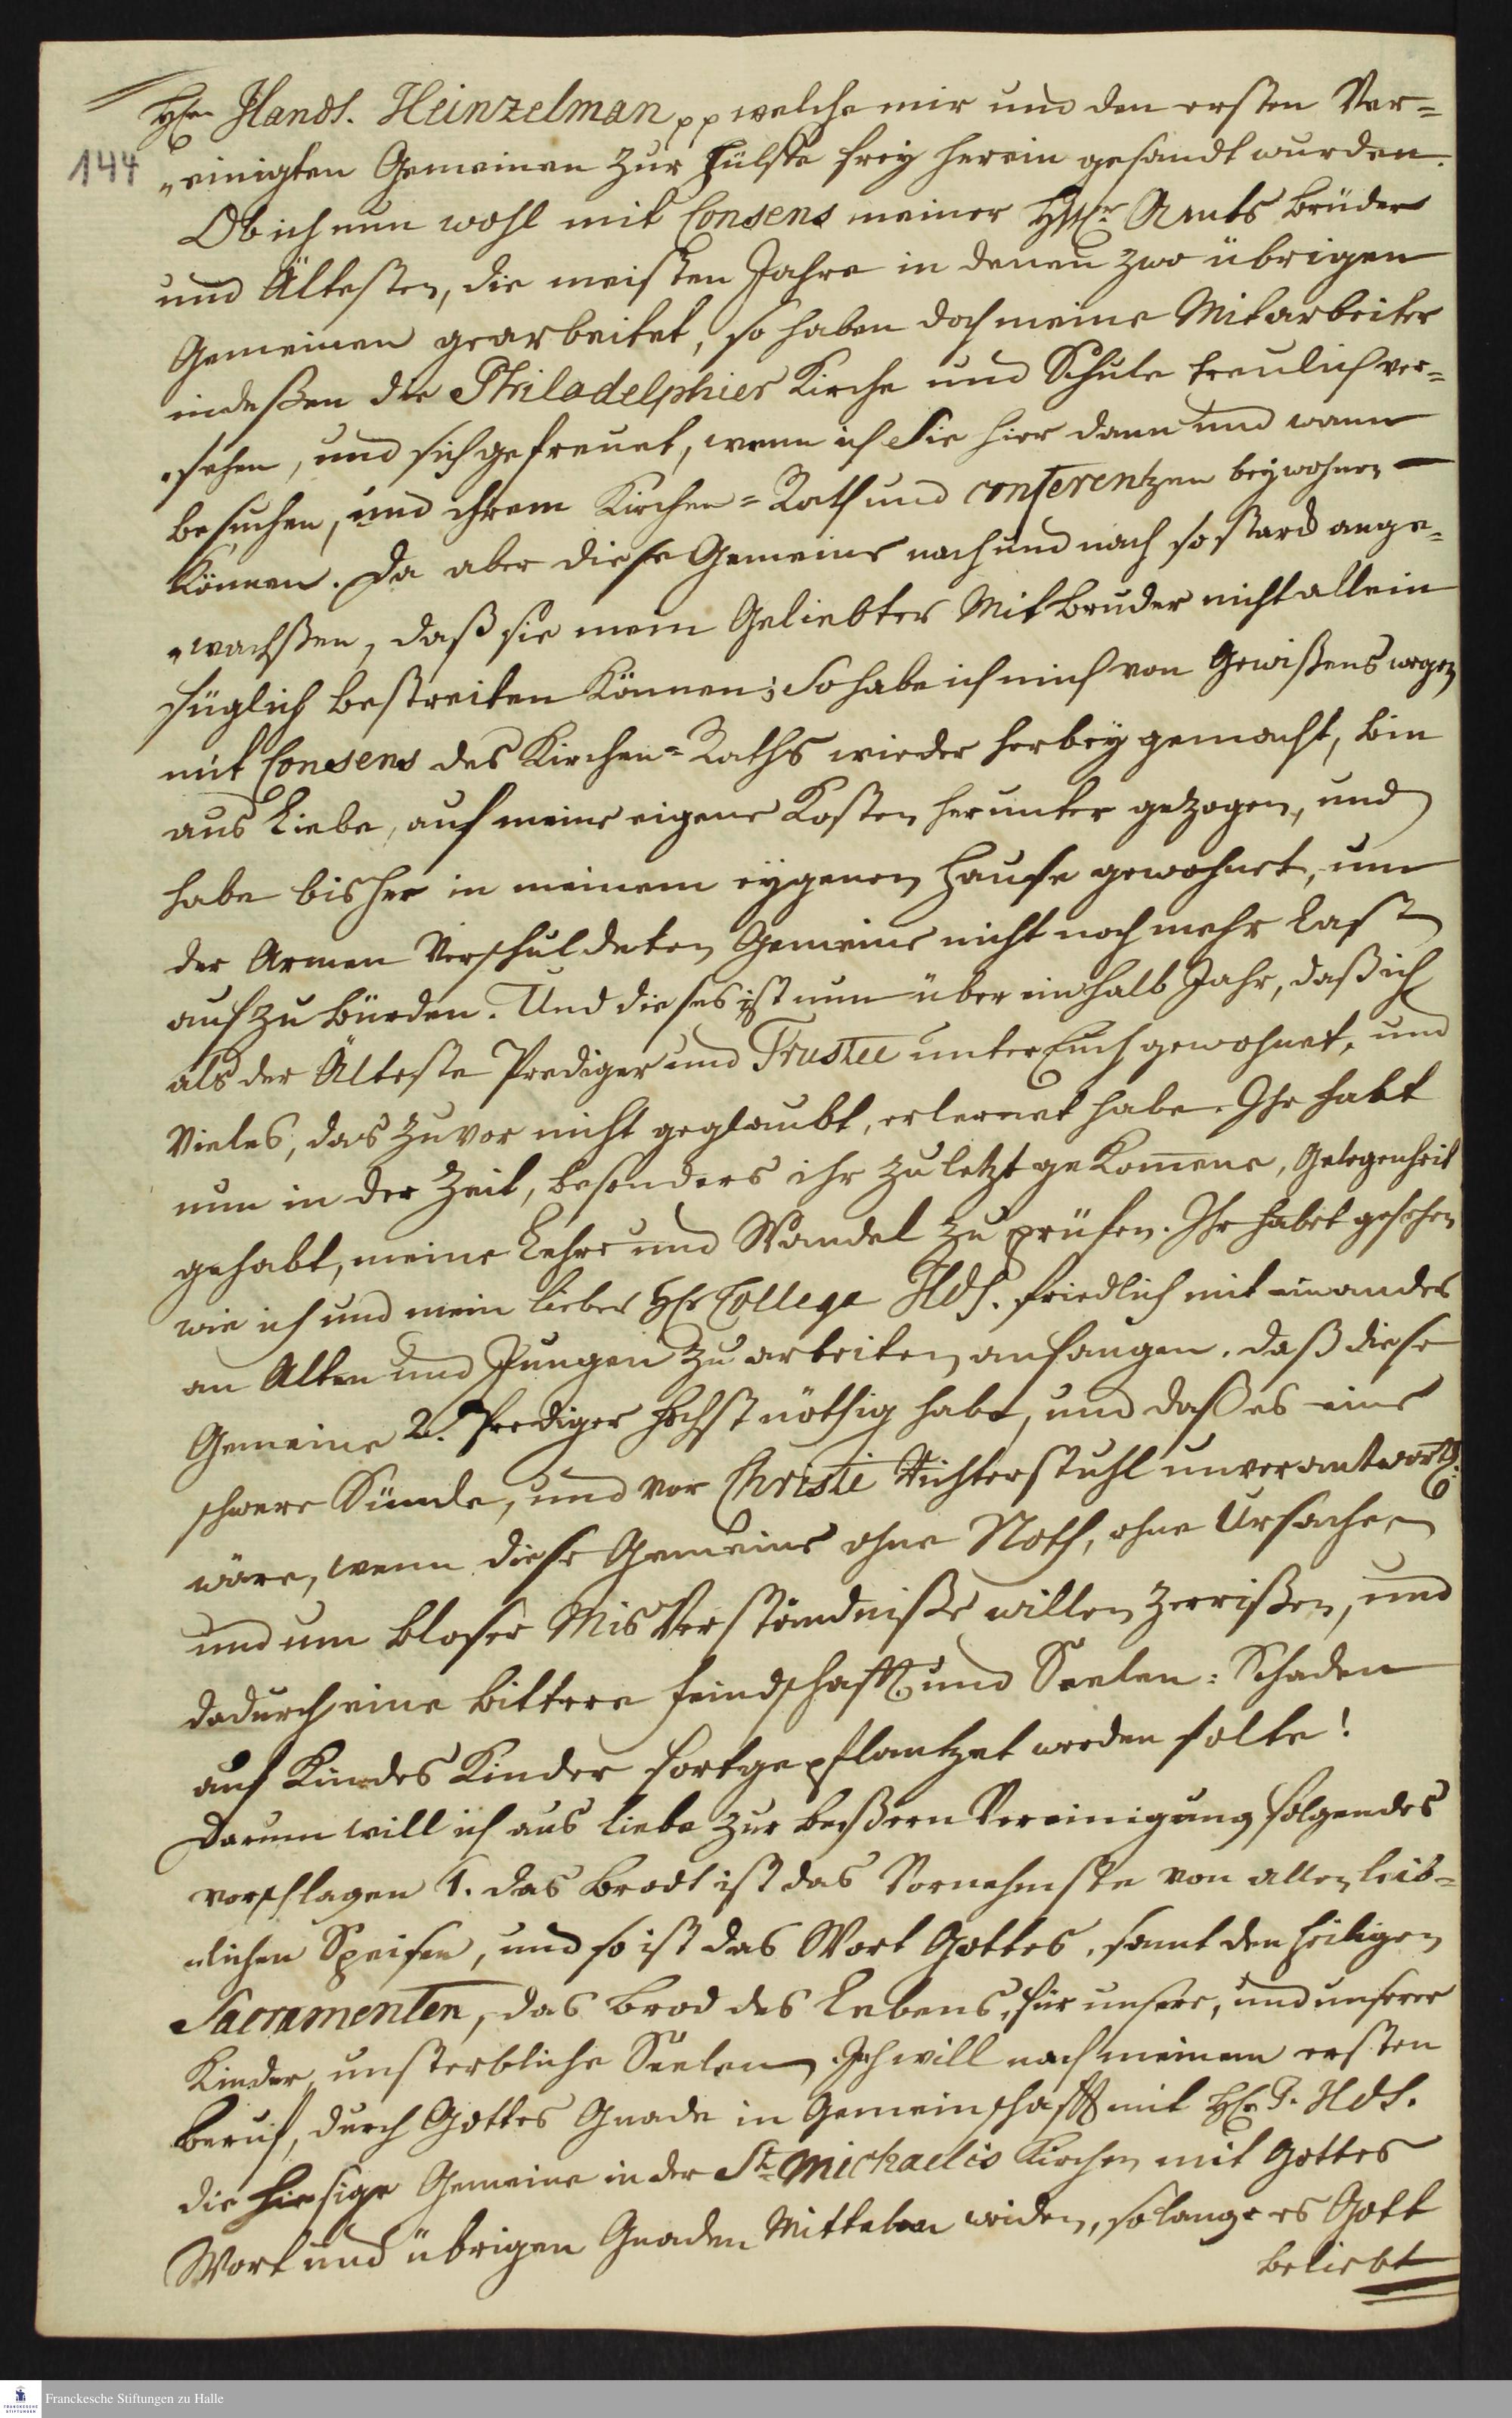 Hrn Handf. Heinzelman pp welche mir und den ersten Ver=
144
"einigten Gemeinen zur Hülffe frey herein gesandt wurden.
Ob ich nun wohl mit Consens meiner HHr Amts Brüder
und Ältesten, die meisten Jahre in denen zwo übrigen
Gemeinen gearbeitet, so haben doch meine Mitarbeiter
indeßen die Philadelphier Kirche und Schule treulich ver=
"sehen, und sich gefreuet, wenn ich Sie hier dann und wann
besuchen, und ihrem Kirchen=Rath und conferentzen beywohnen
können. Da aber diese Gemeine nach und nach so starck ange=
"wachßen, daß sie mein Geliebter Mitbruder nicht allein
füglich bestreiten können; So habe ich mich von Gewißens wegen
mit Consens des Kirchen=Raths wieder herbey gemacht, bin
aus Liebe, auf meine eigene Kosten herunter gezogen, und
habe bisher in meinem eygenen Hause gewohnet, um
der Armen Verschuldeten Gemeine nicht noch mehr Last
aufzubürden. Und dieses ist nun über ein halb Jahr, daß ich
als der Älteste Prediger und Trustee unter Euch gewohnet, und
Vieles, das zuvor nicht geglaubt, erlernet habe. Ihr habt
nun in der Zeit, besonders ihr zuletzt gekomene, Gelegenheit
gehabt, meine Lehre und Wandel zu prüfen. Ihr habet gesehen
wie ich und mein lieber Hr College Hdf. friedlich mit einander
an Alten und Jungen zu arbeiten anfangen. daß diese
Gemeine 2. Prediger höchst nöthig habe, und daß es eine
schwere Sünde, und vor Christi Richterstuhl unverantwortl.
wäre, wenn diese Gemeine ohne Noth, ohne Ursachen
und um bloser MisVerständniße willen zerrißen, und
dadurch eine bittere Feindschafft und Seelen=Schaden
auf Kindes Kinder fortgepflantzet werden solte!
Darum will ich aus Liebe zur beßern Vereinigung folgendes
vorschlagen 1. das Brodt ist das Vornehmste von allen leib=
"lichen Speisen, und so ist das Wort Gottes, samt den heiligen
Sacramenten, das Brod des Lebens, für unsere, und unserer
Kinder unsterbliche Seelen. Ich will nach meinem ersten
Beruf, durch Gottes Gnade in Gemeinschafft mit Hr P. Hdf.
die hiesige Gemeine in der St. Michaelis Kirchen mit Gottes
Wort und übrigen Gnaden Mitteln weiden, so lange es Gott
beliebt
Franckesche Stiftungen zu Halle